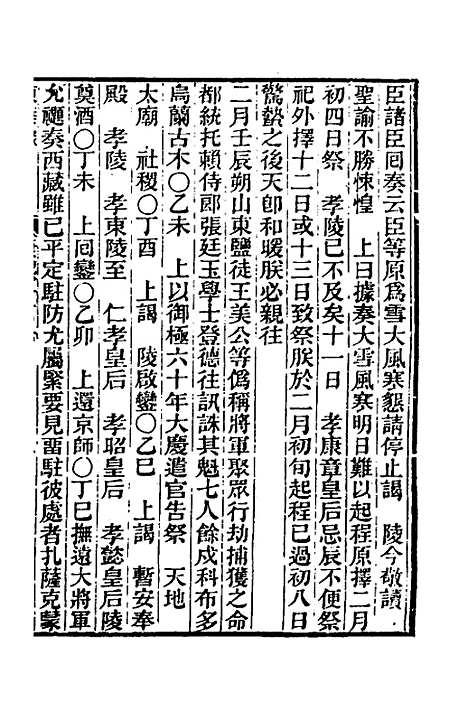 臣諸臣囘奏云臣等原爲雪大風寒懇請停止謁　陵今敬讀
聖諭不勝悚惶　上曰據奏大雪風寒明日難以起程原擇二月
初四日祭　孝陵已不及矣十一日　孝康章皇后忌辰不便祭
祀外擇十二日或十三日致祭朕於二月初旬起程已過初八日
驚蟄之後天卽和暖朕必親往
二月壬辰朔山東鹽徒王美公等僞稱將軍聚眾行劫捕獲之命
都統托賴侍郎張廷玉學士登德往訊誅其魁七人餘戍科布多
烏蘭古木〇乙未　上以御極六十年大慶遣官告祭　天地
太廟　社稷〇丁酉　上謁　陵啟鑾〇乙巳　上謁　暫安奉
殿　孝陵　孝東陵至　仁孝皇后　孝昭皇后　孝懿皇后陵
奠酒〇丁未　上囘鑾〇乙卯　上還京師〇丁巳撫遠大將軍
允禵奏西藏雖已平定駐防尤屬緊要見畱駐彼處者扎薩克蒙